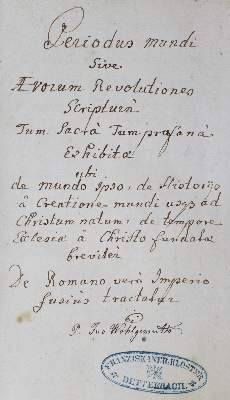 Periodus mundi
Sive
Ævorum Revolutiones
Scripturâ
Tum Sacrâ Tum profanâ
Exhibitæ
ubi
de mundo ipso, de Historijs
â Creatione mundi usq3 ad
Christum natum; de tempore
Ecclesiæ â Christo fundatæ
breviter
De Romano verò Imperio
fusius tractatur
P. Ivo Wohlgemuth
FRANZISKANER-KLOSTER
DETTELBACH.